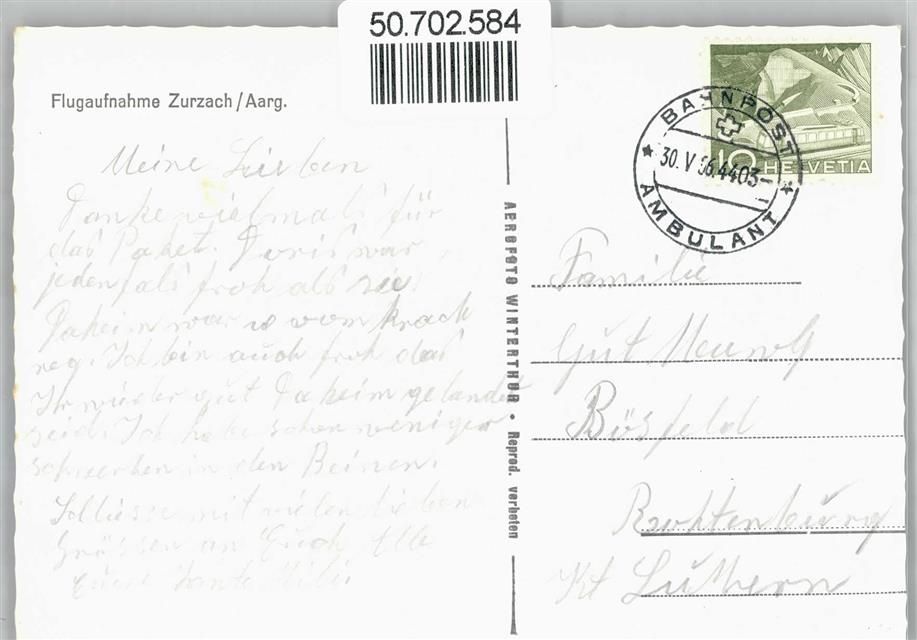 50.702.584
Flugaufnahme Zurzach/Aarg.
Meine Lieben
Danke vielmals für
das Paket. Doris war
jedenfals froh als sie
Daheim war vom
weg. Ich bin auch froh das
Ihr wieder gut Daheim gelandet
seid. Ich habe schon weniger
schmerzen in den Beinen.
Schliesse mit vielen lieben
Grüssen an Euch Alle
Eure Tante
AEROFOTO WINTERTHUR • Reprod. verboten
HELVETIA
10
BAHNPOST
30. V 56. 4403-
AMBULANT
Familie
Gut
Bösfeld
Kt Luthern